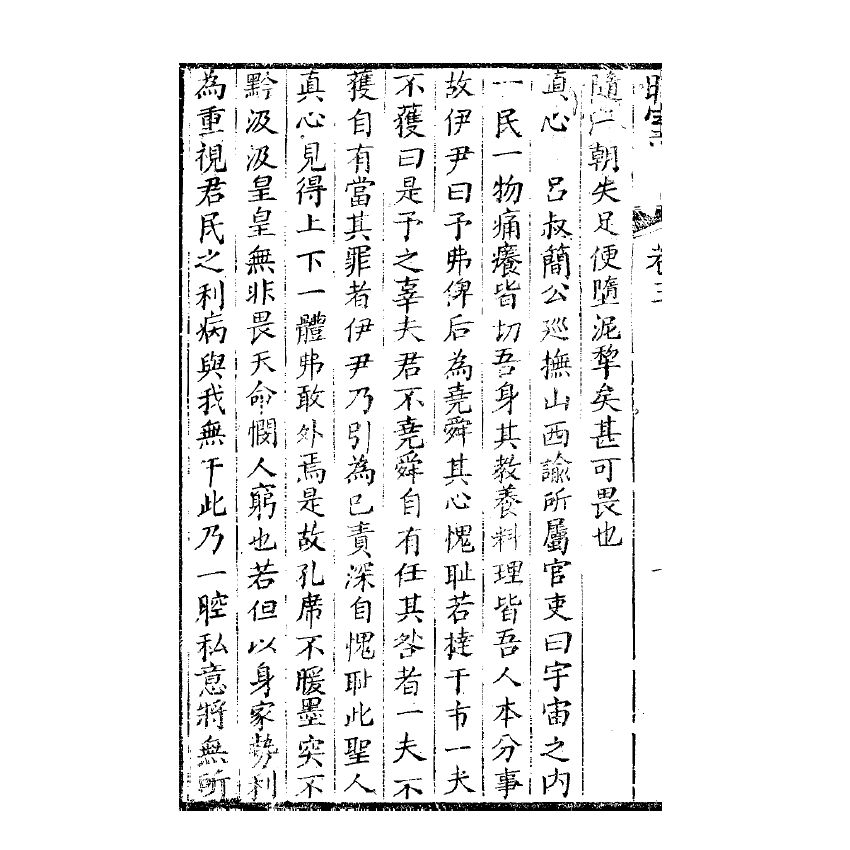 卷三
隨仁朝失足便墮泥犂矣甚可畏也
真心　呂叔簡公廵撫山西諭所屬官吏曰宇宙之内
一民一物痛癢皆切吾身其教養料理皆吾人本分事
故伊尹曰予弗俾后為堯舜其心愧耻若撻于市一夫
不獲曰是予之辜夫君不堯舜自有任其咎者一夫不
獲自有當其罪者伊尹乃引為已責深自愧耻此聖人
真心見得上下一體弗敢外焉是故孔席不暖墨突不
黔汲汲皇皇無非畏天命憫人窮也若但以身家勢利
為重視君民之利病與我無干此乃一腔私意將無所